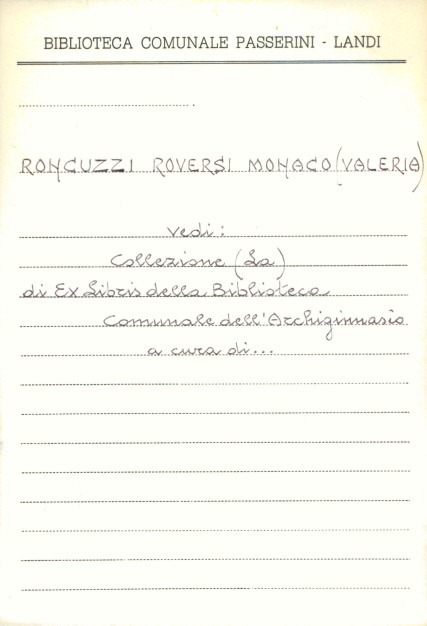 BIBLIOTECA COMUNALE PASSERINI - LANDI
RONCUZZI ROVERSI MONACO (VALERIA)
Vedi:
Collezione (La)
di Ex Libris della Biblioteca
Comunale dell'Archiginnasio
a cura di...